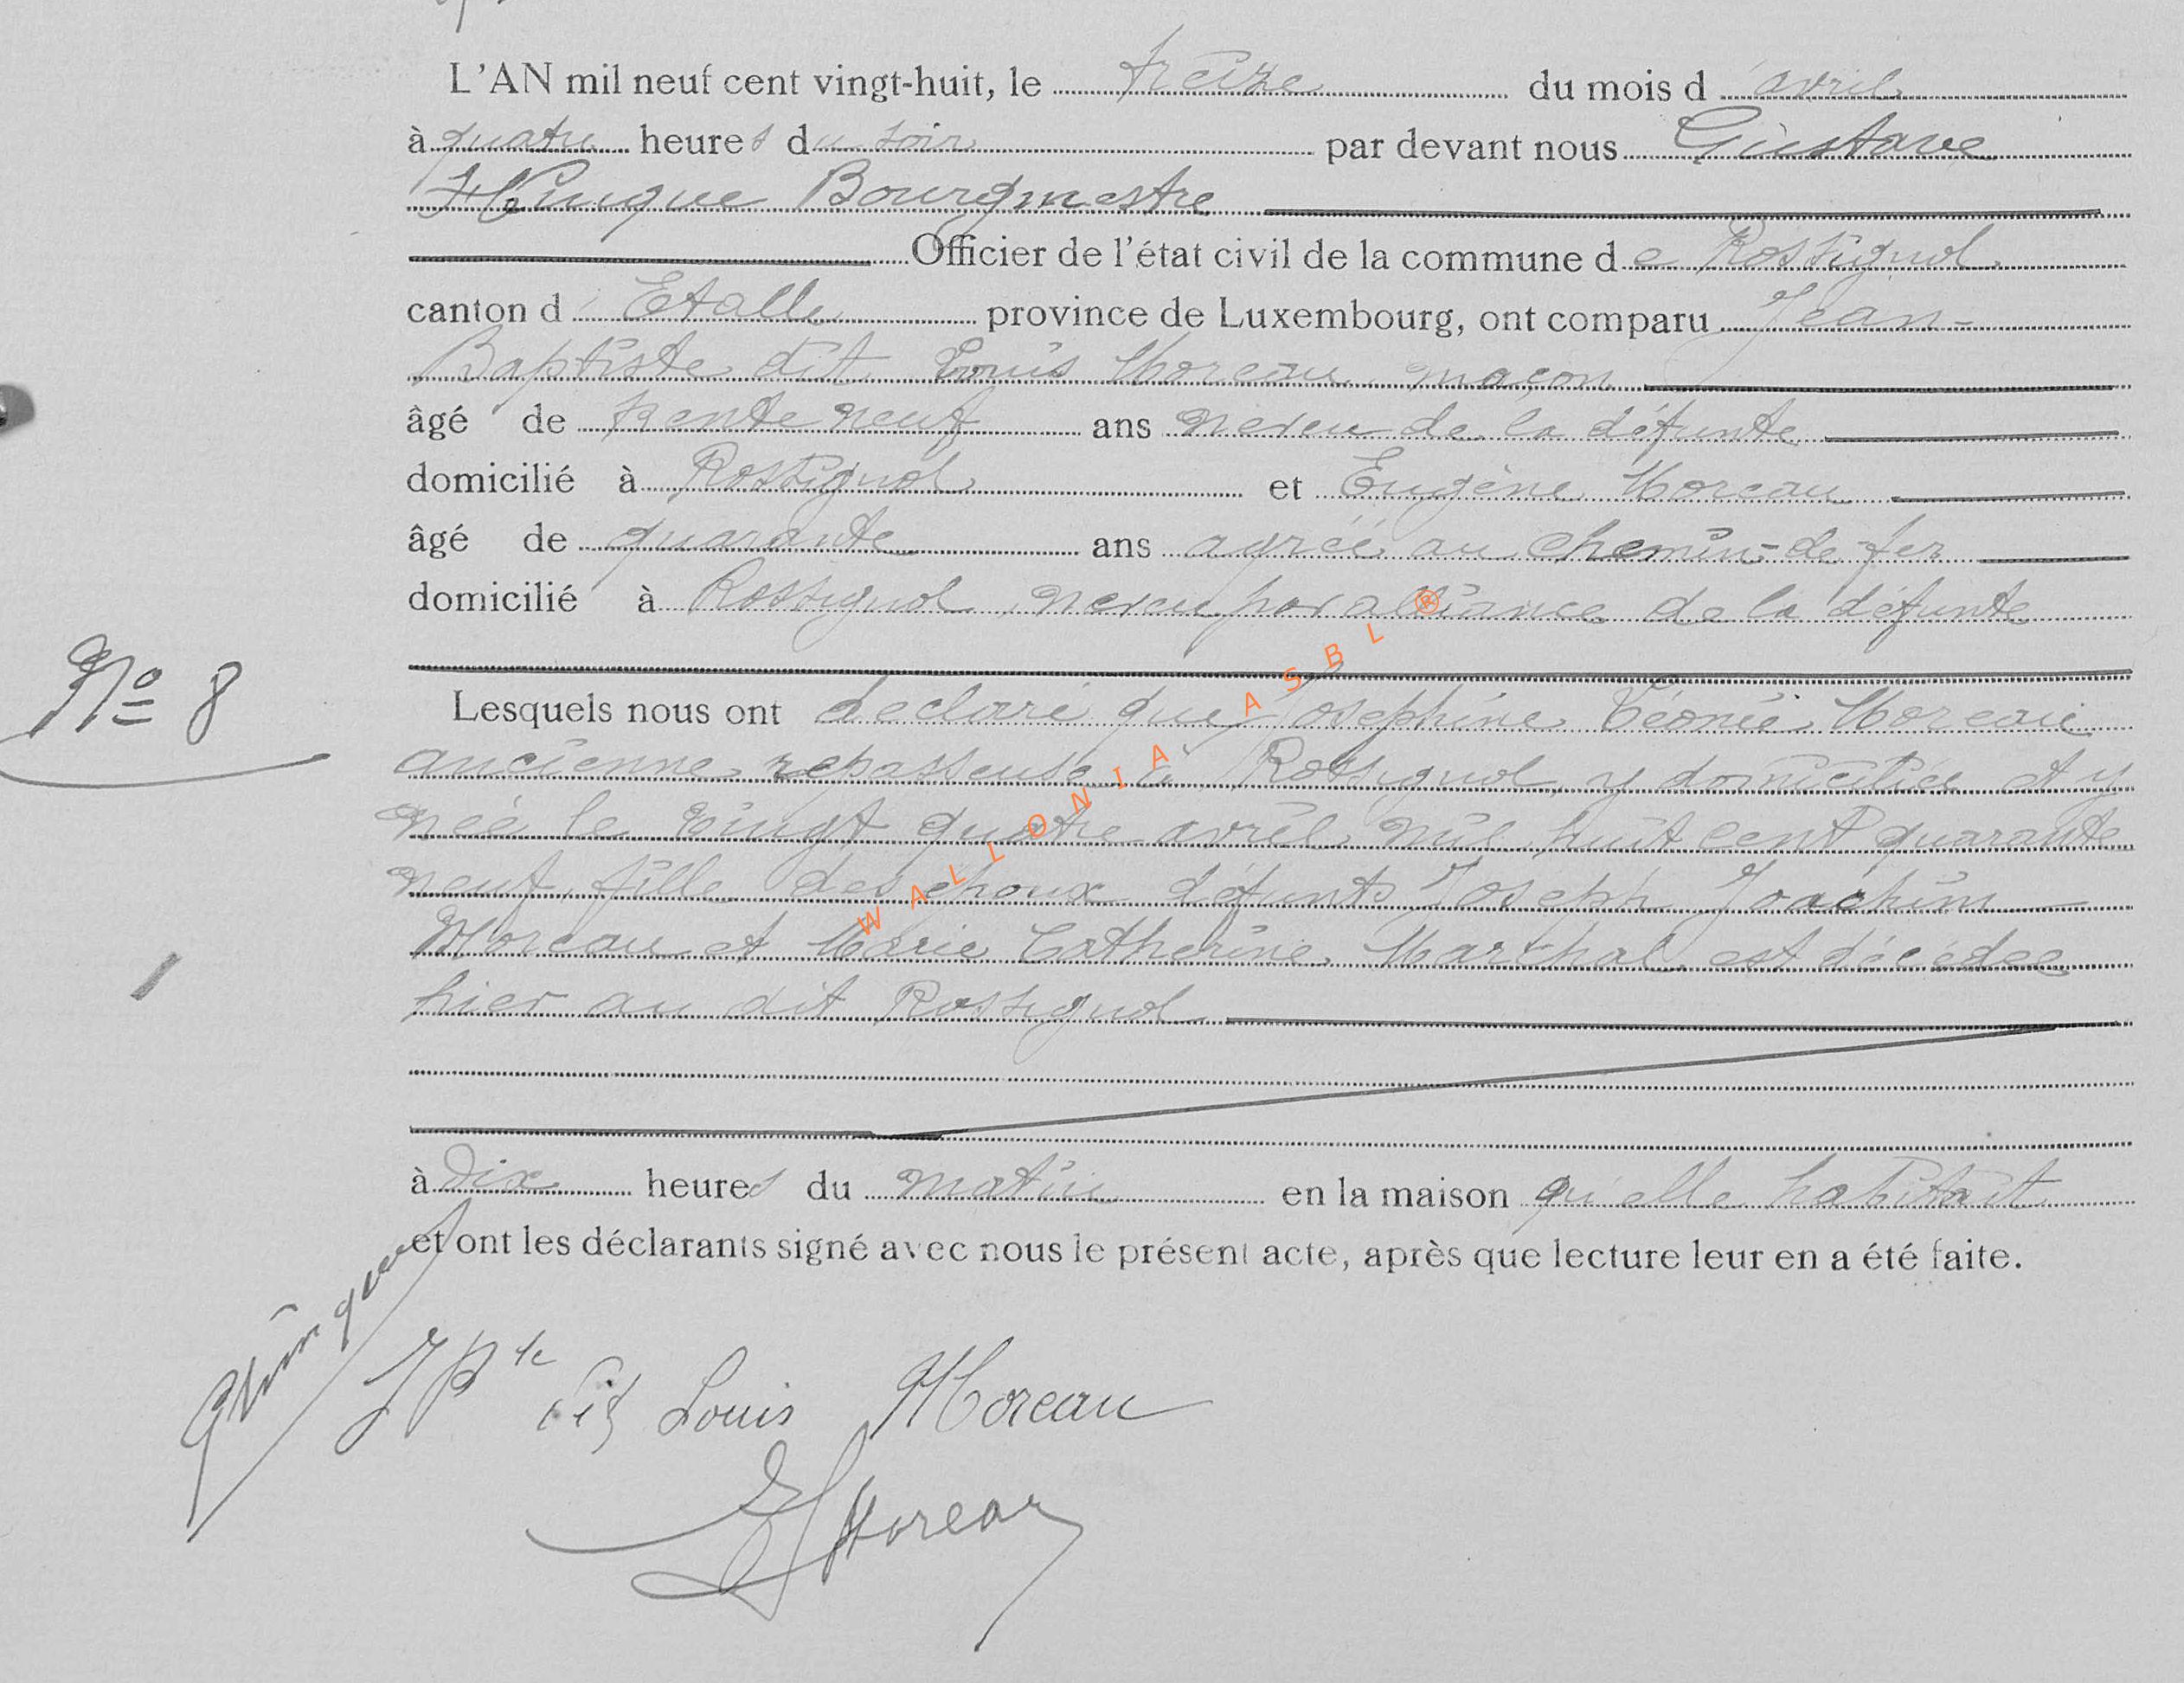 L'AN mil neuf cent vingt-huit, le treize du mois d'avril
à quatre heures du soir par devant nous Gustave
Hinque Bourgmestre
Officier de l'état civil de la commune de Rossignol
canton d'Etalle province de Luxembourg, ont comparu Jean-
Baptiste dit Louis Moreau maçon
âgé de trente neuf ans neveu de la défunte
domicilié à Rossignol et Eugène Moreau
âgé de quarante ans agréé au chemin-de-fer
domicilié à Rossignol, neveu par alliance de la défunte
No 8
Lesquels nous ont déclaré que Joséphine Léonie Moreau
ancienne repasseuse à Rossignol, y domiciliée et y
née le vingt quatre avril mil huit cent quarante
neuf, fille des époux défunts Joseph Joachim
Moreau et Marie Catherine Marchal est décédée
hier au dit Rossignol
à Dix heures du matin en la maison qu'elle habitait
et ont les déclarants signé avec nous le présent acte, après que lecture leur en a été faite.
GHinque
JBte dit Louis Moreau
E Moreau
WALLONIA ASBL ®